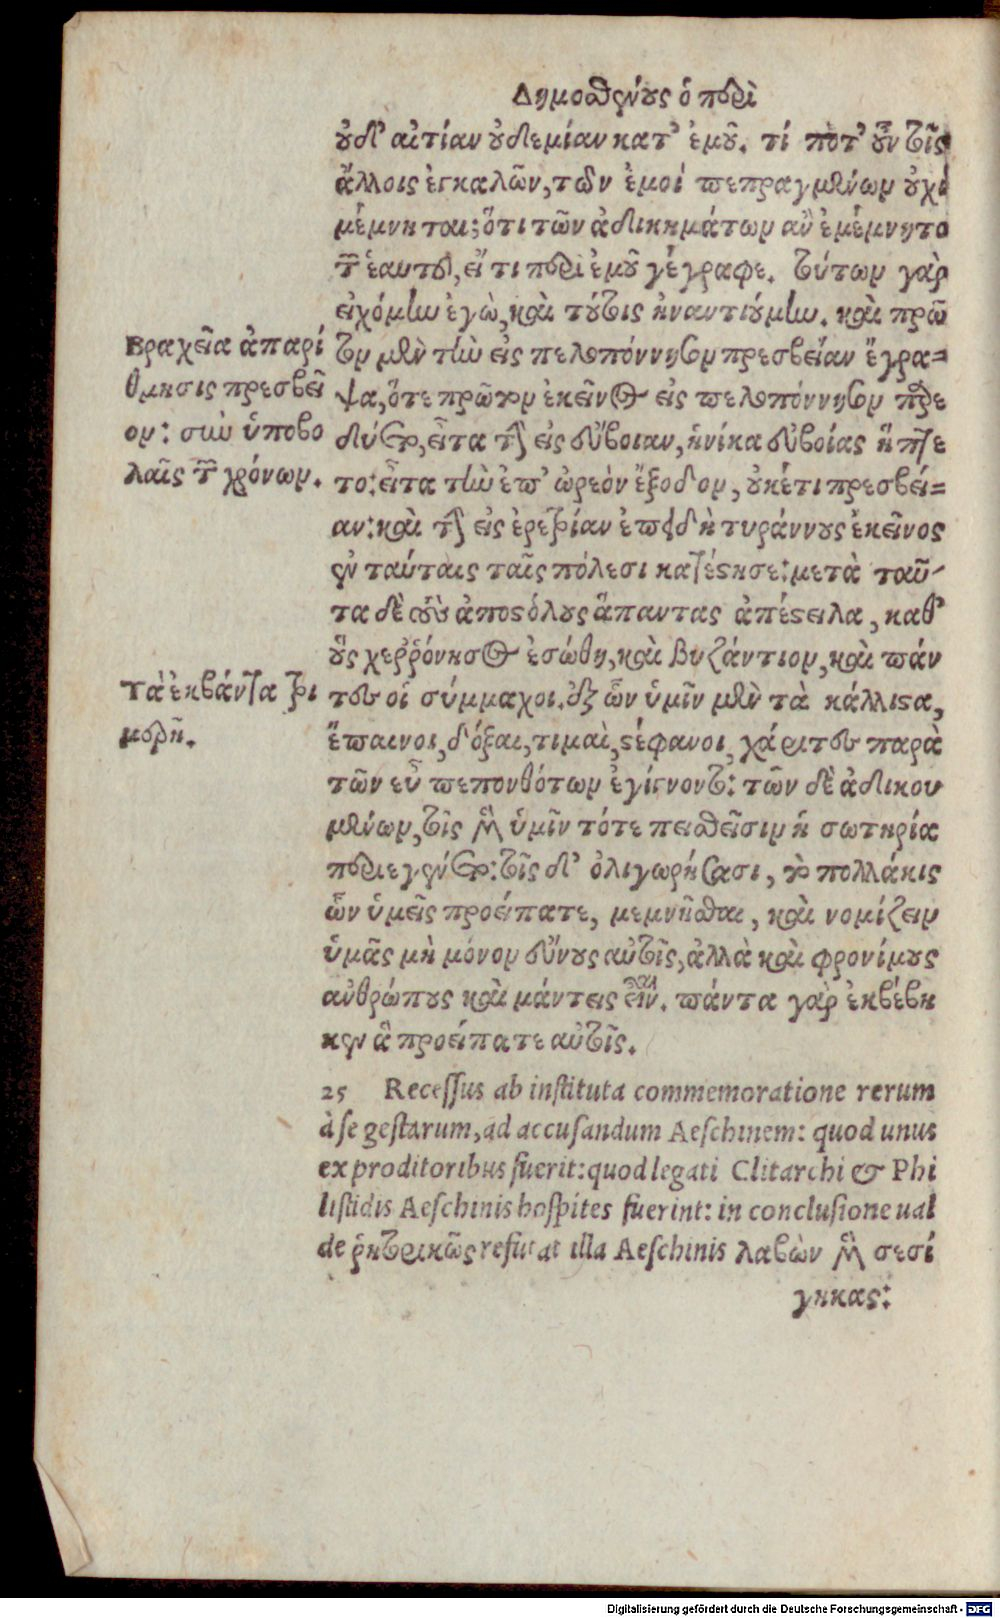 Δημοσθένους ὁ περὶ
οὐδ' αἰτίαν οὐδεμίαν κατ' ἐμοῦ. τί ποτ' οὖν τοῖς
ἄλλοις ἐγκαλῶν, τῶν ἐμοί πεπραγμένων οὐχὶ
μέμνηται; ὅτι τῶν ἀδικημάτων ἂν ἐμέμνητο
τῶν ἑαυτοῦ, εἴ τι περὶ ἐμοῦ γέγραφε. τούτων γὰρ
εἰχόμην ἐγὼ, καὶ τούτοις ἠναντιούμην. καὶ πρῶ
Βραχεῖα ἀπαρί
θμησις πρεσβεῖ
ον: σὺν ὑποβο
λαῖς τῶν χρόνων.
τον μὲν τὴν εἰς πελοπόννησον πρεσβείαν ἔγρα=
ψα, ὅτε πρῶτον ἐκεῖνος εἰς πελοπόννησον παρε
δύετο, εἶτα τὴν εἰς εὔβοιαν, ἡνίκα εὐβοίας ἥπτε
το: εἶτα τὴν ἐπ' ὠρεὸν ἔξοδον, οὐκέτι πρεσβεί=
αν: καὶ τὴν εἰς ἐρετρίαν ἐπειδὴ τυράννους ἐκεῖνος
ἐν ταύταις ταῖς πόλεσι κατέστησε: μετὰ ταῦ-
τα δὲ τοὺς ἀποστόλους ἅπαντας ἀπέστειλα, καθ'
οὓς χερρόνησος ἐσώθη, καὶ βυζάντιον, καὶ πάν
Τὰ ἐκβάντα τρι
μερῆ.
τες οἱ σύμμαχοι. ἐξ ὧν ὑμῖν μὲν τὰ κάλλιστα,
ἔπαινοι, δόξαι, τιμαὶ, στέφανοι, χάριτες παρὰ
τῶν εὖ πεπονθότων ἐγίγνοντο: τῶν δὲ ἀδικου
μένων, τοῖς μὲν ὑμῖν τότε πεισθεῖσιν ἡ σωτηρία
περιεγένετο: τοῖς δ' ὀλιγωρήσασι, τὸ πολλάκις
ὧν ὑμεῖς προείπατε, μεμνῆσθαι, καὶ νομίζειν
ὑμᾶς μὴ μόνον εὔνους αὐτοῖς, ἀλλὰ καὶ φρονίμους
ἀνθρώπους καὶ μάντεις εἶναι. πάντα γὰρ ἐκβέβη
κεν ἃ προείπατε αὐτοῖς.
25 Recessus ab instituta commemoratione rerum
à se gestarum, ad accusandum Aeschinem: quod unus
ex proditoribus fuerit: quod legati Clitarchi & Phi
listidis Aeschinis hospites fuerint: in conclusione ual
de ῥητορικῶς refutat illa Aeschinis λαβὼν μὲν σεσί
γηκας:
Digitalisierung gefördert durch die Deutsche Forschungsgemeinschaft - DFG